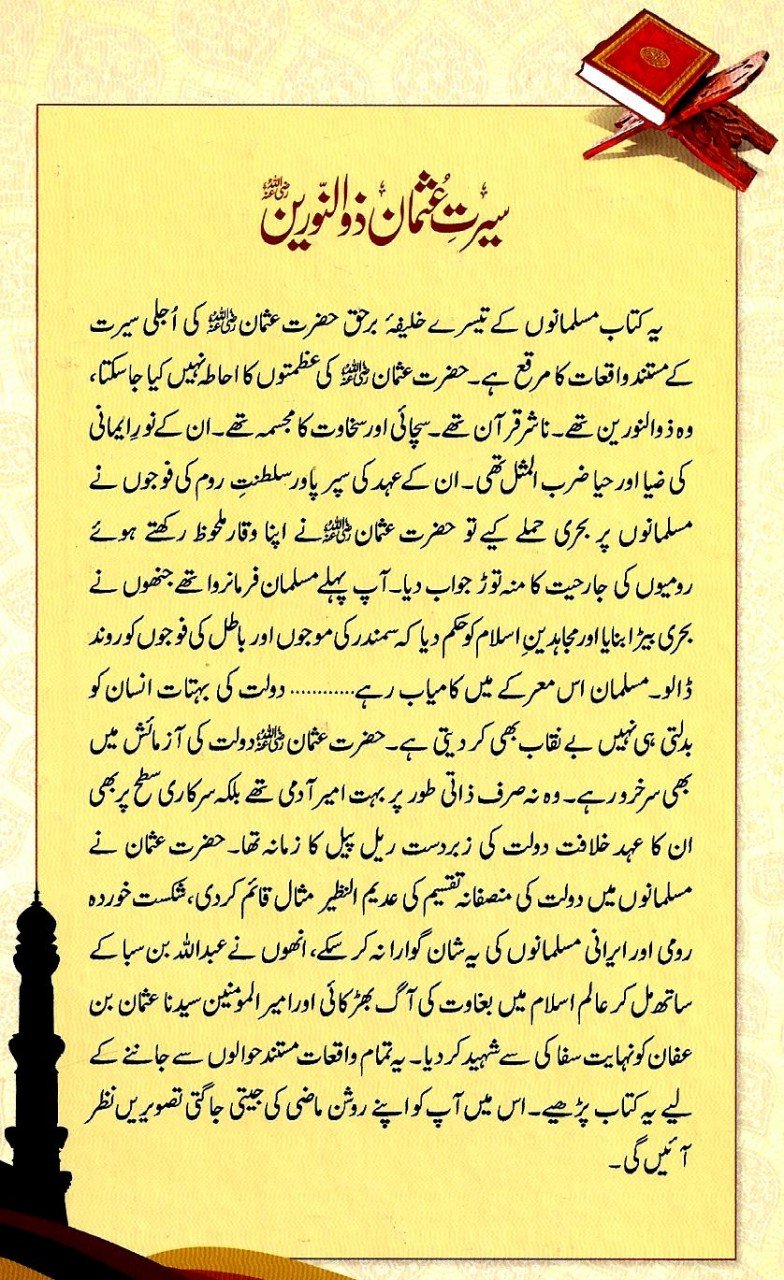 سیرتِ عُثمان ذوالنّورین رضی اللہ عنہ
یہ کتاب مسلمانوں کے تیسرے خلیفۂ برحق حضرت عثمان رضی اللہ عنہ کی اُجلی سیرت
کے مستند واقعات کا مرقع ہے۔ حضرت عثمان رضی اللہ عنہ کی عظمتوں کا احاطہ نہیں کیا جاسکتا،
وہ ذوالنورین تھے۔ ناشرِ قرآن تھے۔ سچائی اور سخاوت کا مجسمہ تھے۔ ان کے نورِ ایمانی
کی ضیا اور حیا ضرب المثل تھی۔ ان کے عہد کی سپر پاور سلطنتِ روم کی فوجوں نے
مسلمانوں پر بحری حملے کیے تو حضرت عثمان رضی اللہ عنہ نے اپنا وقار ملحوظ رکھتے ہوئے
رومیوں کی جارحیت کا منہ توڑ جواب دیا۔ آپ پہلے مسلمان فرمانروا تھے جنھوں نے
بحری بیڑا بنایا اور مجاہدینِ اسلام کو حکم دیا کہ سمندر کی موجوں اور باطل کی فوجوں کو روند
ڈالو۔ مسلمان اس معرکے میں کامیاب رہے............ دولت کی بہتات انسان کو
بدلتی ہی نہیں بے نقاب بھی کر دیتی ہے۔ حضرت عثمان رضی اللہ عنہ دولت کی آزمائش میں
بھی سرخرو رہے۔ وہ نہ صرف ذاتی طور پر بہت امیر آدمی تھے بلکہ سرکاری سطح پر بھی
ان کا عہد خلافت دولت کی زبردست ریل پیل کا زمانہ تھا۔ حضرت عثمان نے
مسلمانوں میں دولت کی منصفانہ تقسیم کی عدیم النظیر مثال قائم کردی، شکست خوردہ
رومی اور ایرانی مسلمانوں کی یہ شان گوارا نہ کر سکے، انھوں نے عبداللہ بن سبا کے
ساتھ مل کر عالم اسلام میں بغاوت کی آگ بھڑکائی اور امیر المومنین سیدنا عثمان بن
عفان کو نہایت سفاکی سے شہید کر دیا۔ یہ تمام واقعات مستند حوالوں سے جاننے کے
لیے یہ کتاب پڑھیے۔ اس میں آپ کو اپنے روشن ماضی کی جیتی جاگتی تصویریں نظر
آئیں گی۔